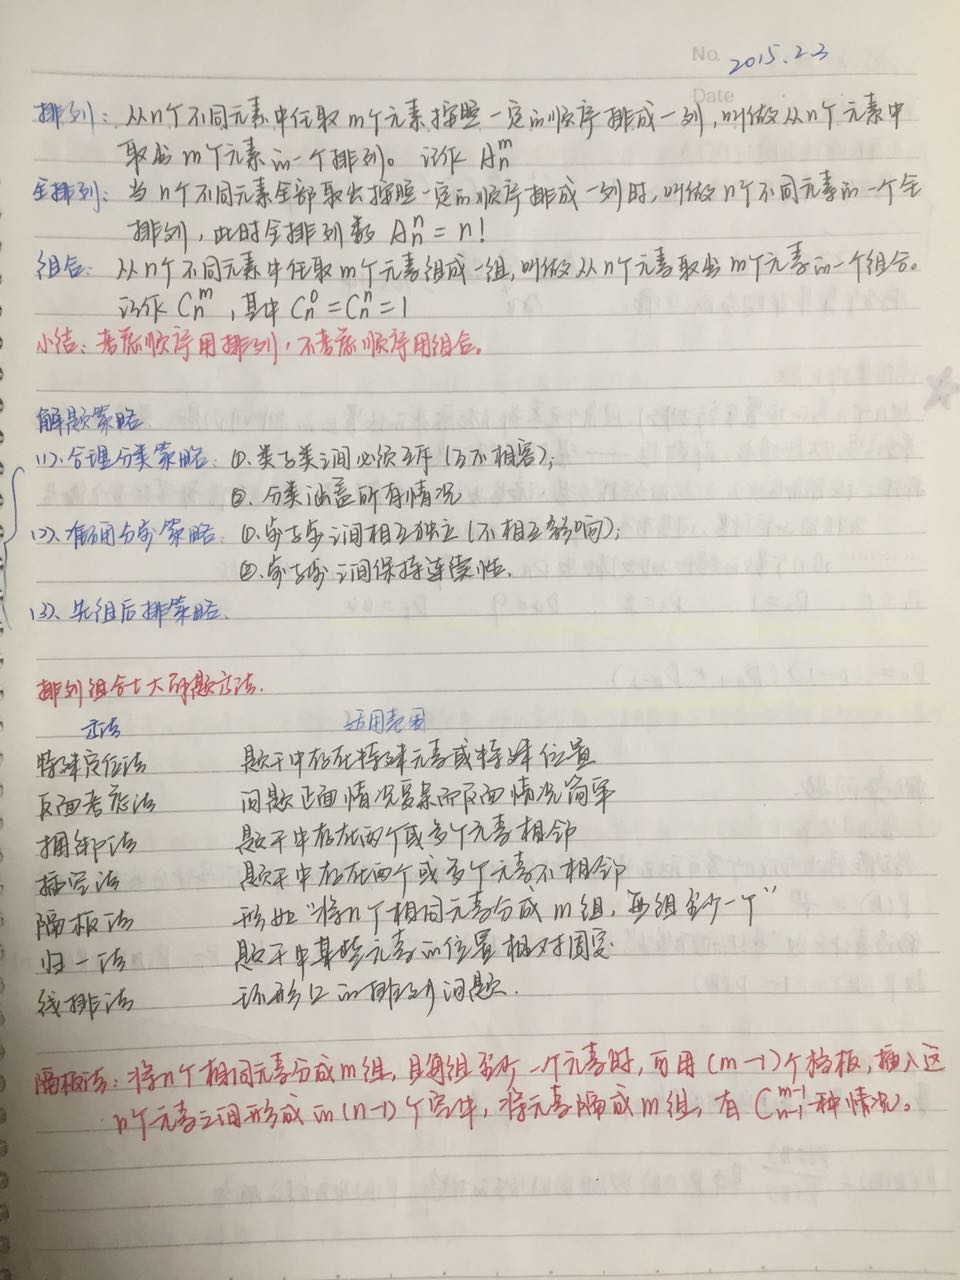 No. 2015.2.3
Date
排列: 从n个不同元素中任取m个元素按照一定的顺序排成一列,叫做从n个元素中
取出m个元素的一个排列。记作 Aₙᵐ
全排列: 当n个不同元素全部取出按照一定的顺序排成一列时,叫做n个不同元素的一个全
排列,此时全排列数 Aₙⁿ=n!
组合: 从n个不同元素中任取m个元素组成一组,叫做从n个元素取出m个元素的一个组合。
记作 Cₙᵐ,其中 Cₙ⁰=Cₙⁿ=1
小结: 考虑顺序用排列,不考虑顺序用组合。
解题策略
(1). 合理分类策略: ①.类与类之间必须互斥(互不相容);
②.分类涵盖所有情况
(2). 准确分步策略: ①.步与步之间相互独立(不相互影响);
②.步与步之间保持连续性.
(3). 先组后排策略.
排列组合七大解题方法.
方法 适用范围
特殊定位法 题干中存在特殊元素或特殊位置
反面考虑法 问题正面情况复杂而反面情况简单
捆绑法 题干中存在两个或多个元素相邻
插空法 题干中存在两个或多个元素不相邻
隔板法 形如“将n个相同元素分成m组,每组至少一个”
归一法 题干中某些元素的位置相对固定.
线排法 环形上的排列问题.
隔板法: 将n个相同元素分成m组,且每组至少一个元素时,可用(m-1)个挡板,插入这
n个元素之间形成的(n-1)个空中,将元素隔成m组,有 Cₙ₋₁ᵐ⁻¹种情况。